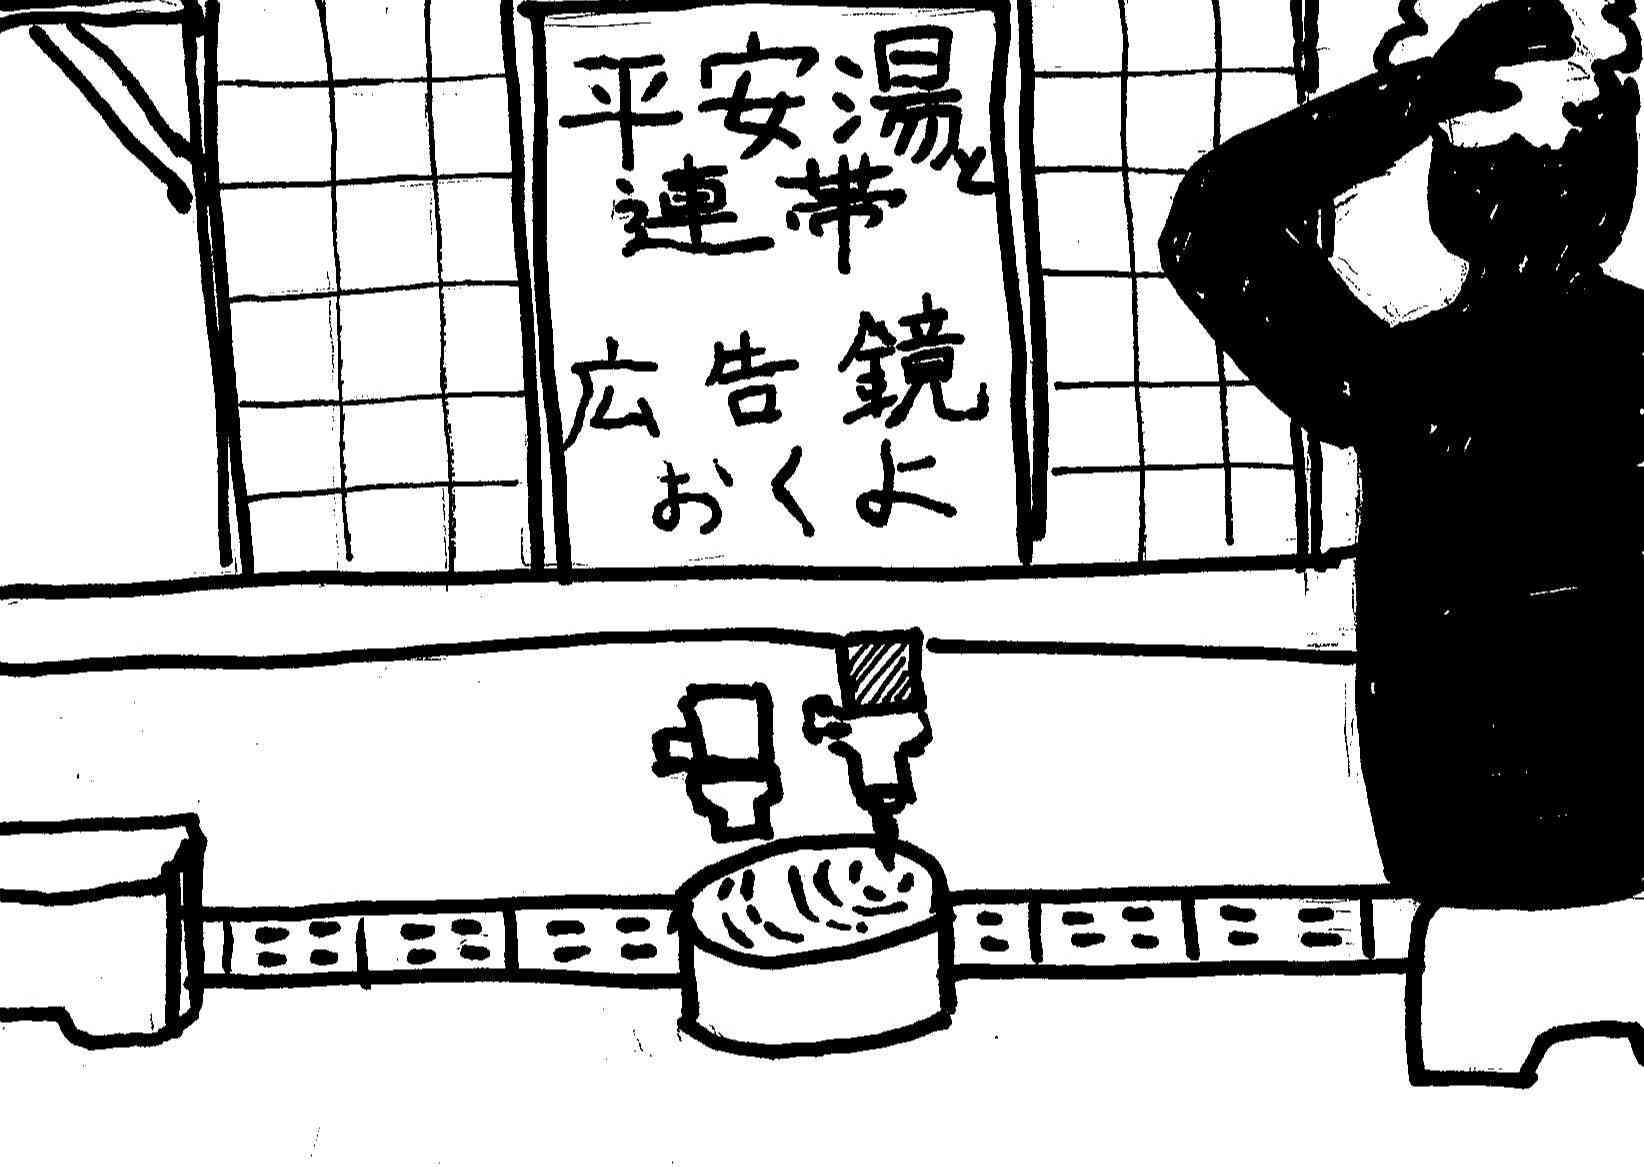 平安湯と
連帯
広告鏡
おくよ